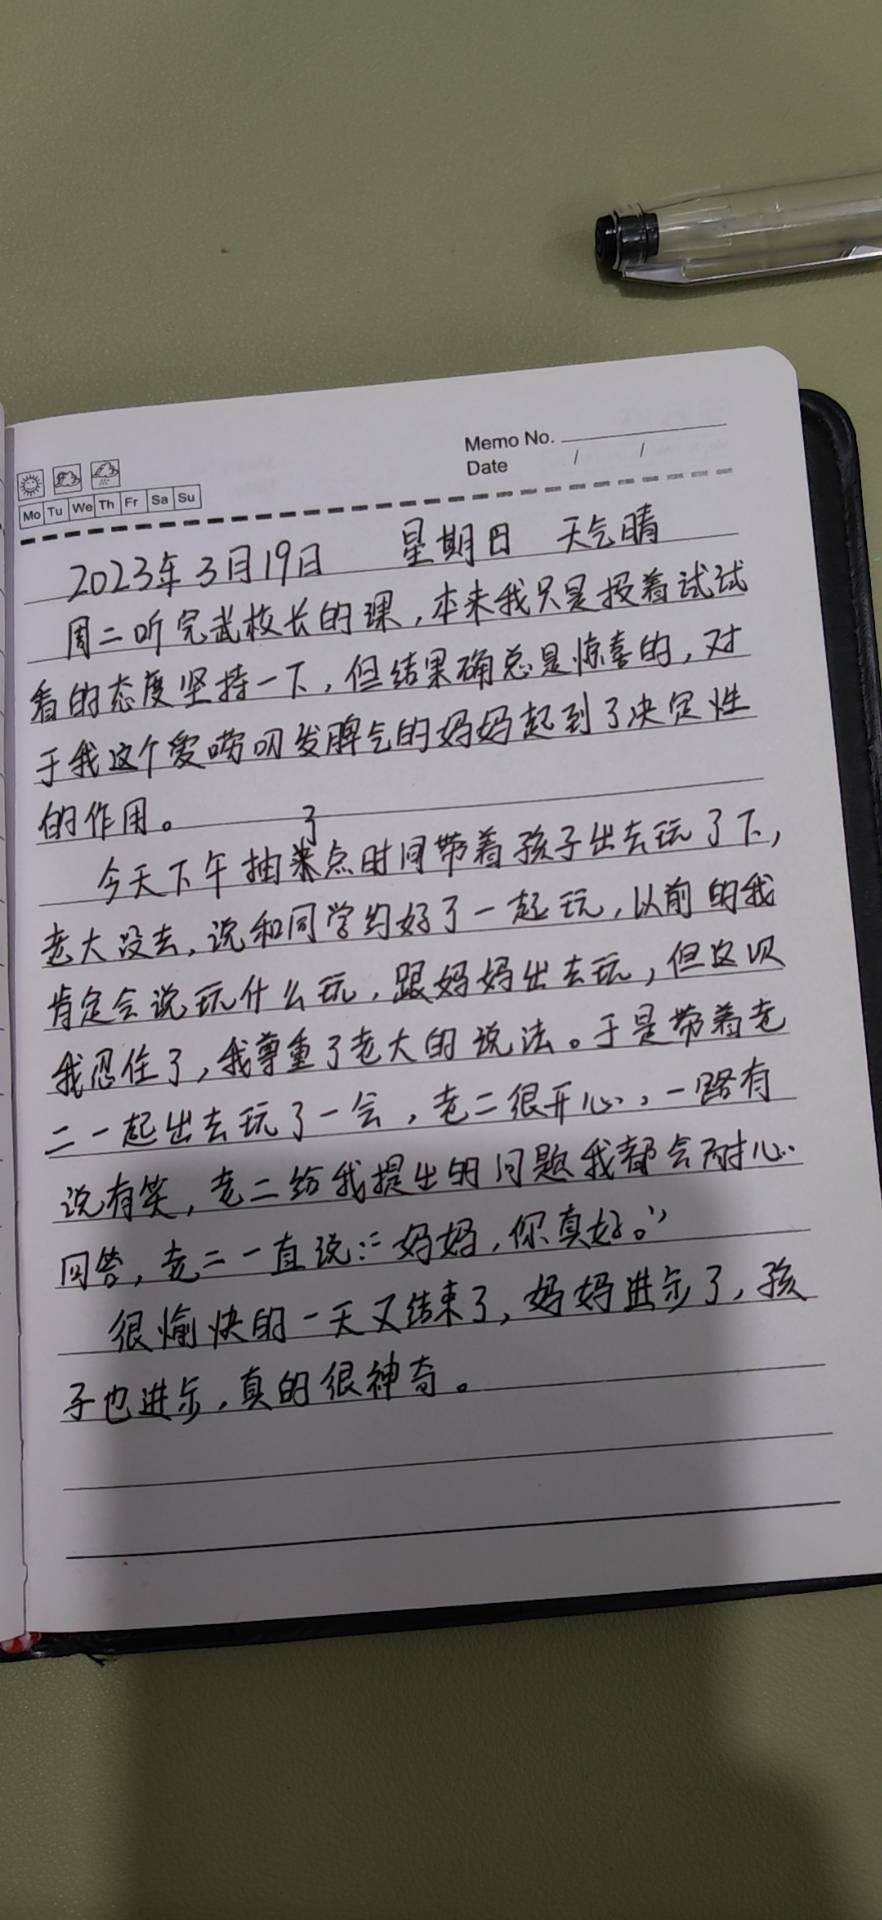 Memo No.
Date / /
Mo Tu We Th Fr Sa Su
2023年3月19日 星期日 天气晴
周二听完武校长的课，本来我只是报着试试
看的态度坚持一下，但结果确总是惊喜的，对
于我这个爱唠叨发脾气的妈妈起到了决定性
的作用。
今天下午抽了点时间带着孩子出去玩了下，
老大没去，说和同学约好了一起玩，以前的我
肯定会说玩什么玩，跟妈妈出去玩，但这次
我忍住了，我尊重了老大的说法。于是带着老
二一起出去玩了一会，老二很开心，一路有
说有笑，老二给我提出的问题我都会耐心
回答，老二一直说：“妈妈，你真好。”
很愉快的一天又结束了，妈妈进步了，孩
子也进步，真的很神奇。